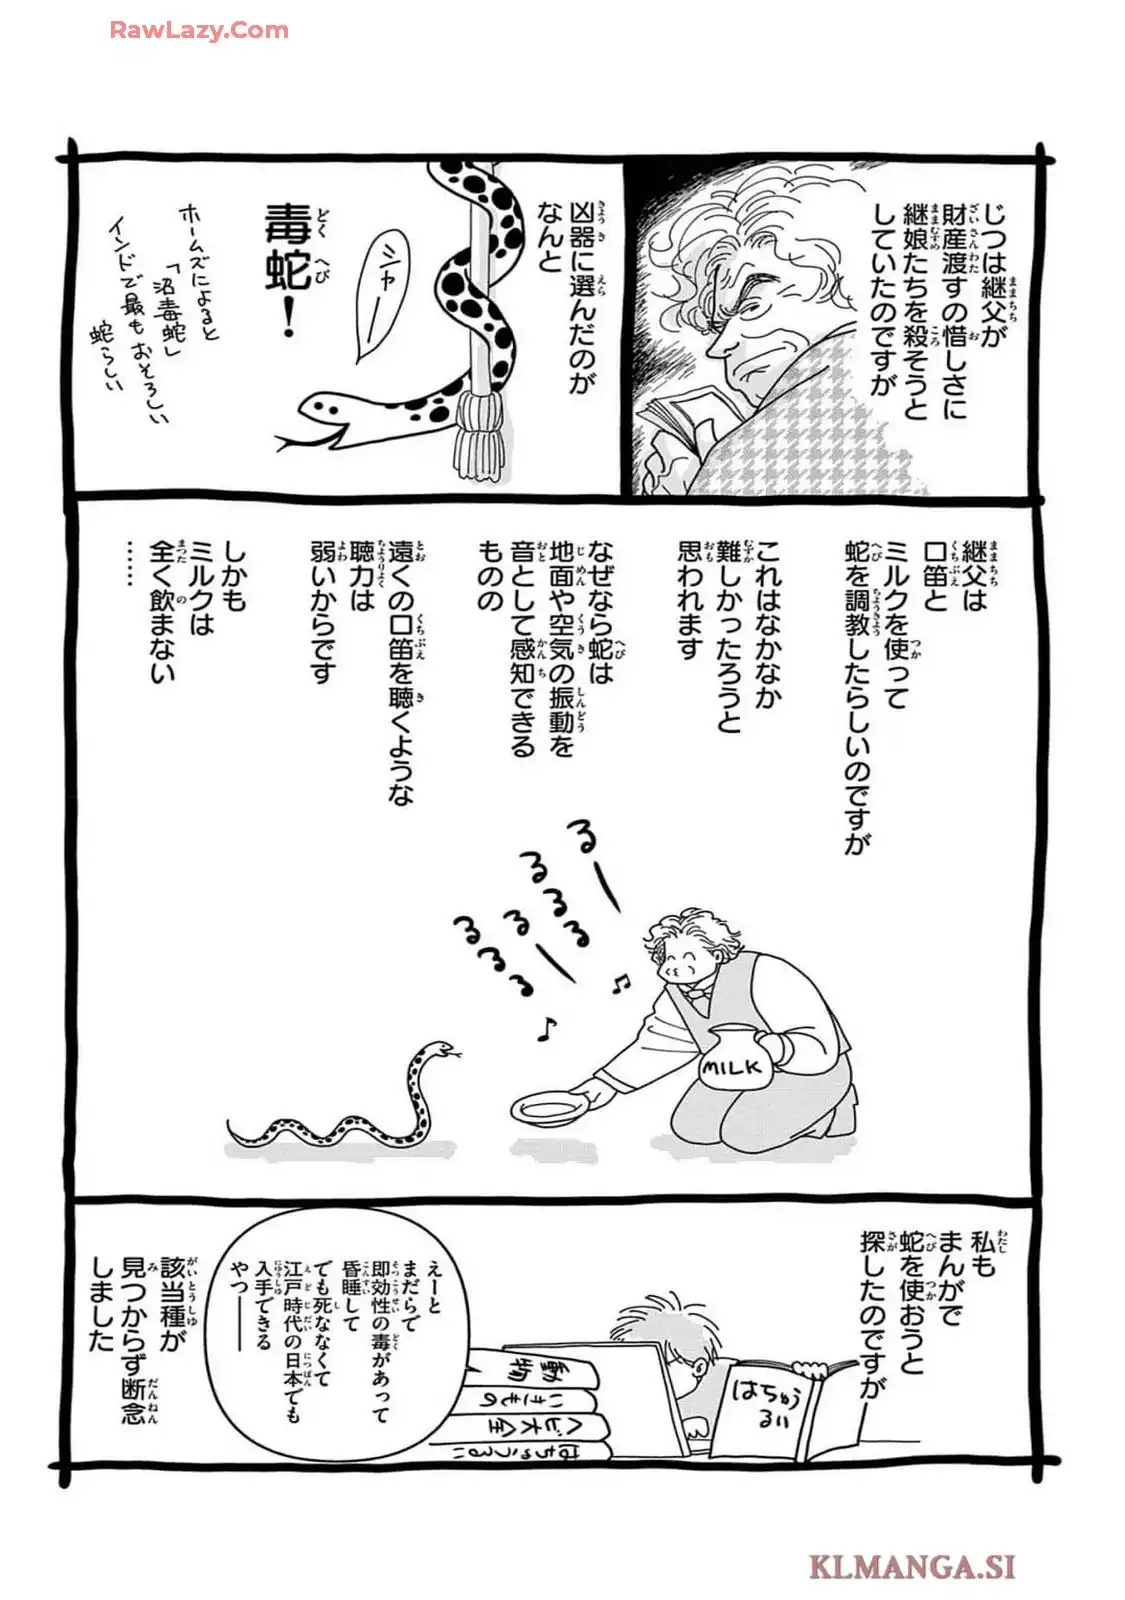 RawLazy.Com
じつは継父が
財産渡すの惜しさに
継娘たちを殺そうと
していたのですが
凶器に選んだのが
なんと
毒蛇！
シャー
ホームズによると
「沼毒蛇」
インドで最もおそろしい
蛇らしい
継父は
口笛と
ミルクを使って
蛇を調教したらしいのですが
これはなかなか
難しかったろうと
思われます
なぜなら蛇は
地面や空気の振動を
音として感知できる
ものの
遠くの口笛を聴くような
聴力は
弱いからです
しかも
ミルクは
全く飲まない
……
るー
るるるる
るー
るるる
MILK
私も
まんがで
蛇を使おうと
探したのですが
はちゅう
るい
動物
いきもの
ヘビ大全
はちゅうるい
えーと
まだらで
即効性の毒があって
昏睡して
でも死ななくて
江戸時代の日本でも
入手できる
やつ――
該当種が
見つからず断念
しました
KLMANGA.SI